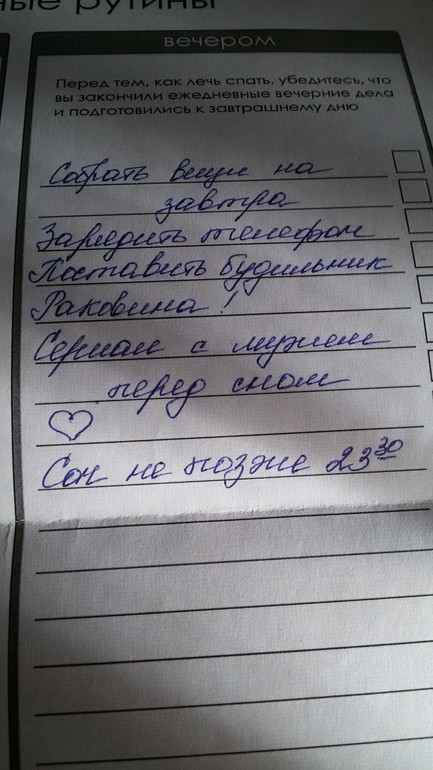 ные рутины
вечером
Перед тем, как лечь спать, убедитесь, что
вы закончили ежедневные вечерние дела
и подготовились к завтрашнему дню
Собрать вещи на
завтра
Зарядить телефон
Поставить будильник
Раковина!
Сериал с мужем
перед сном
Сон не позже 23 30